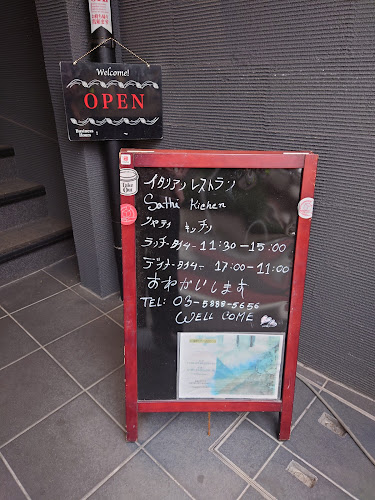 Welcome!
OPEN
Business
Hours
Take
Out
イタリアンレストラン
Sathi Kichen
シャティ キッチン
ランチ-タイム- 11:30-15:00
ディナ-タイム- 17:00-11:00
すねがいします
TEL: 03-5888-5656
WELL COME